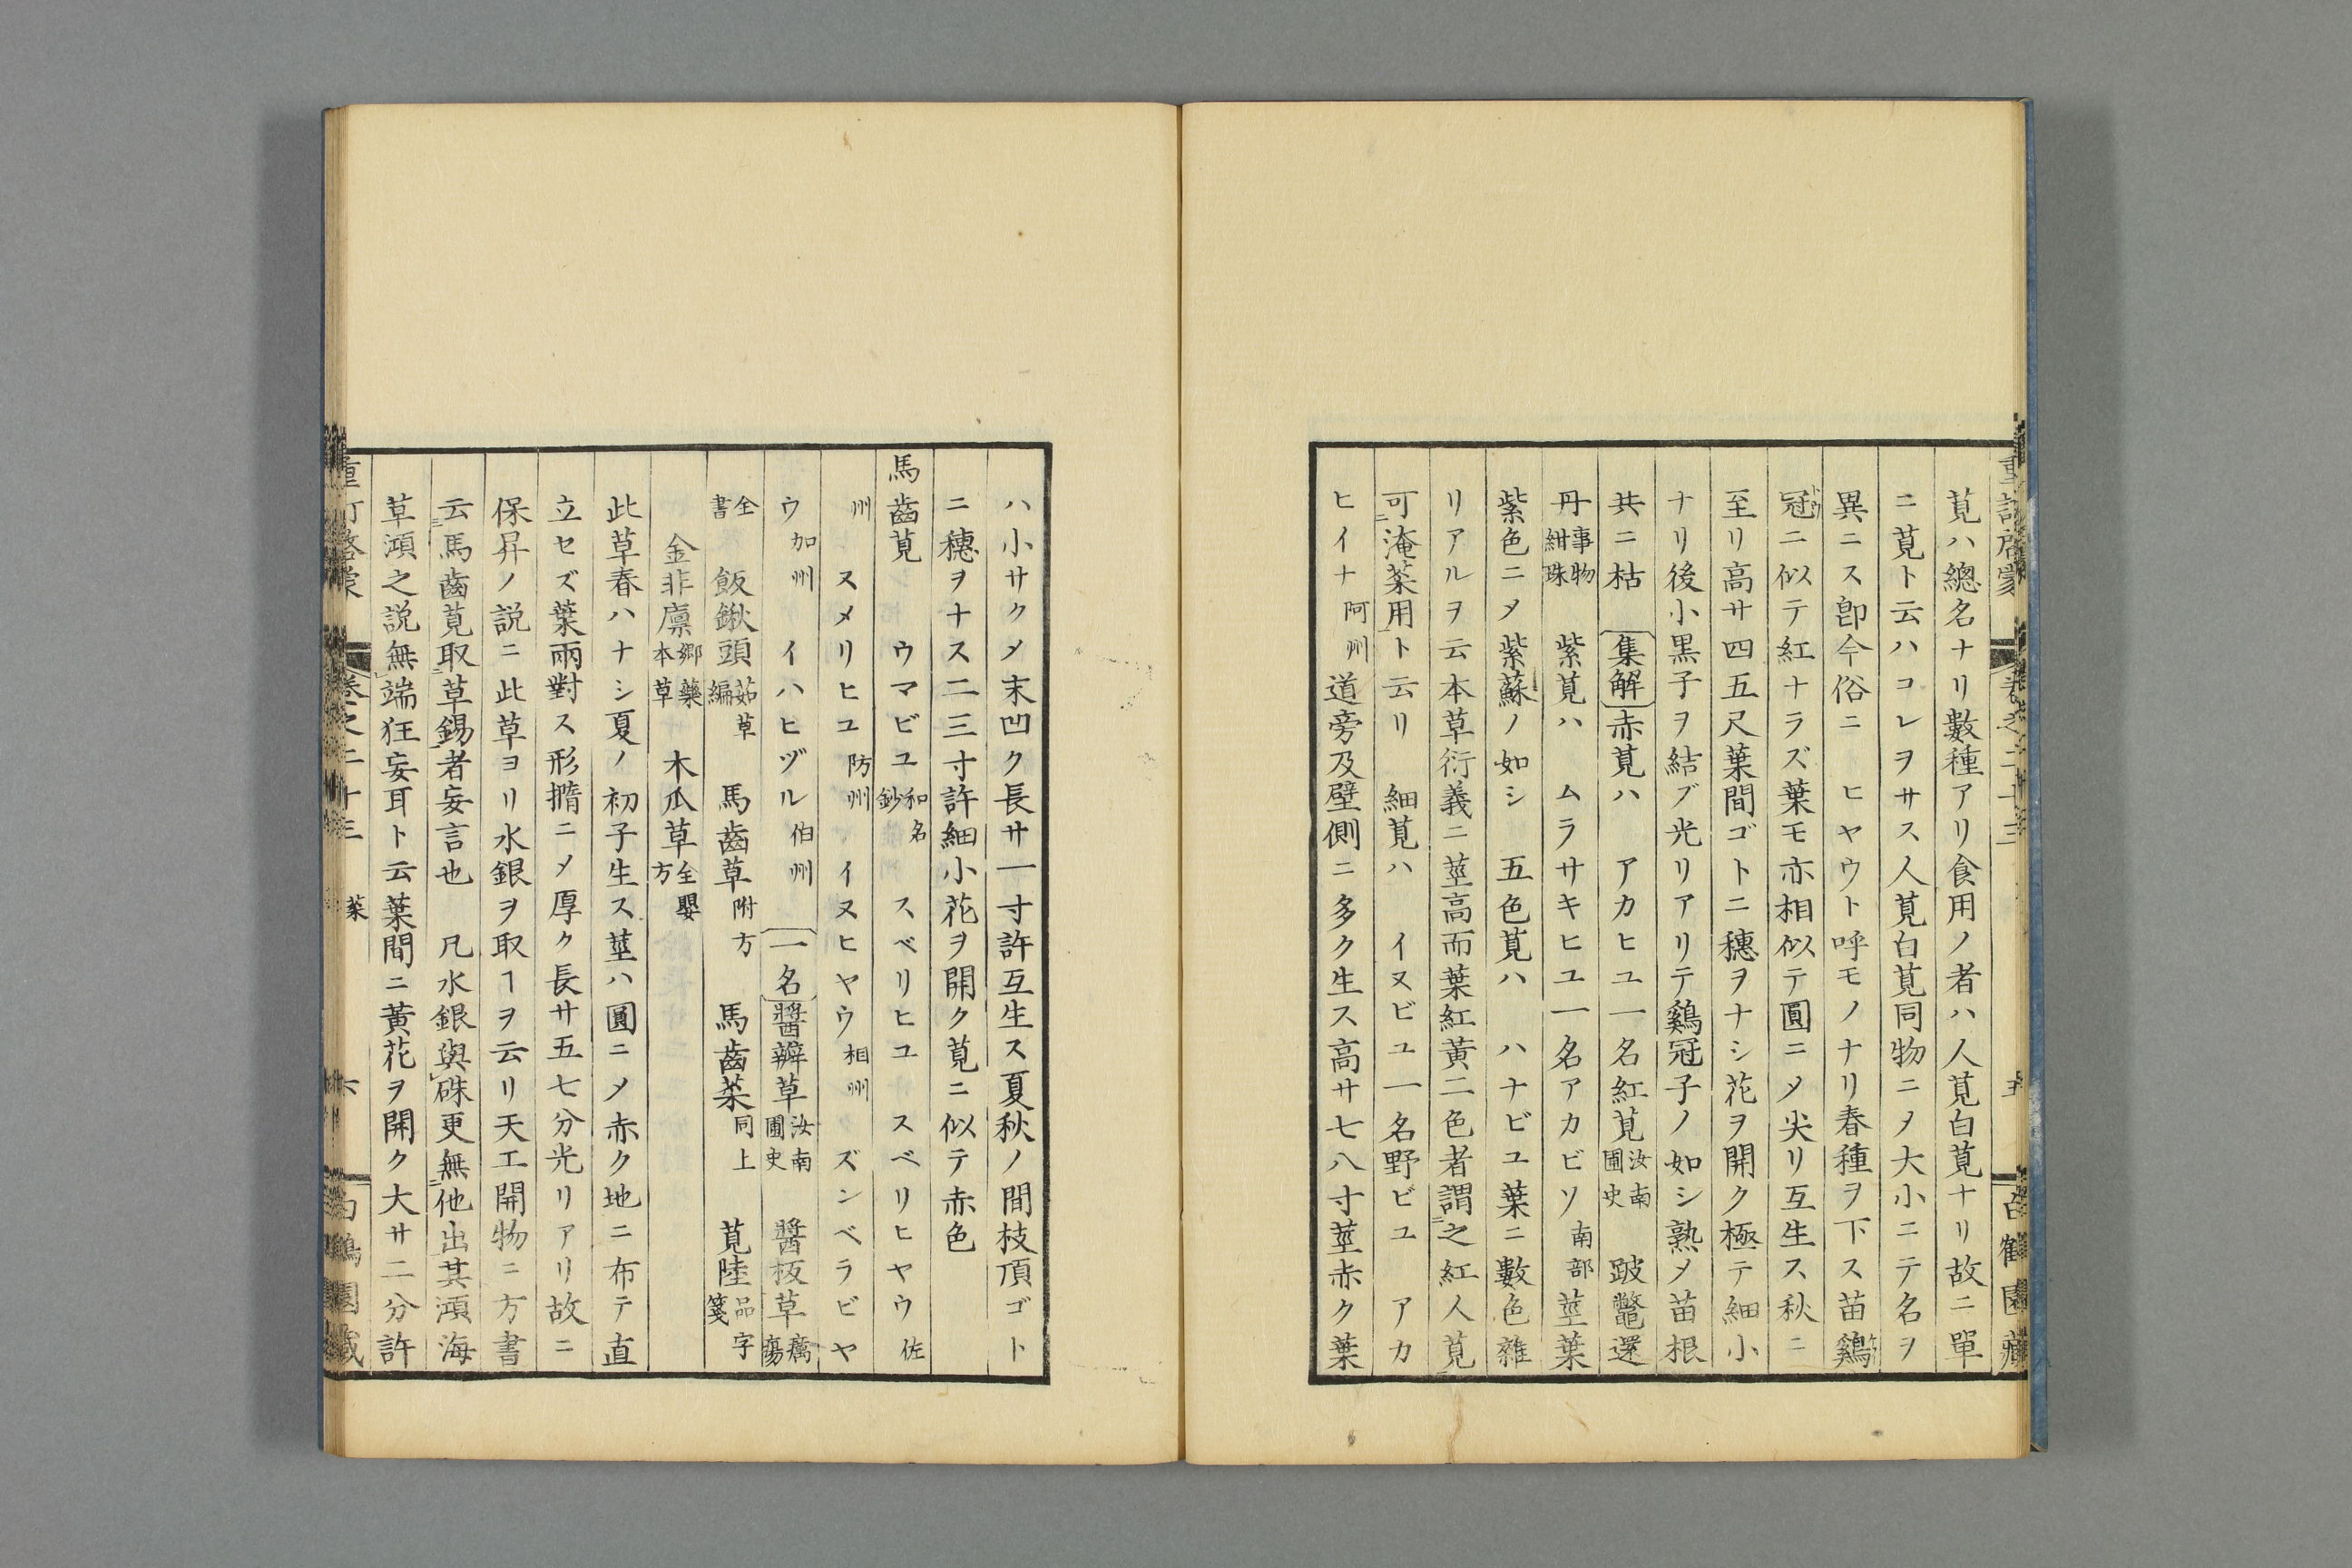 莧ハ總名ナリ數種アリ食用ノ者ハ人莧白莧ナリ故ニ單
ニ莧ト云ハコレヲサス人莧白莧同物ニメ大小ニテ名ヲ
異ニス卽今俗ニ ヒヤウト呼モノナリ春種ヲ下ス苗鷄
冠ニ似テ紅ナラズ葉モ亦相似テ圓ニメ尖リ互生ス秋ニ
至リ高サ四五尺葉間ゴトニ穗ヲナシ花ヲ開ク極テ細小
ナリ後小黒子ヲ結ブ光リアリテ鷄冠子ノ如シ熟メ苗根
共ニ枯 集解 赤莧ハ アカヒユ一名紅莧汝南圃史 跛鼈還
丹事物紺珠 紫莧ハ ムラサキヒユ一名アカビソ南部 莖葉
紫色ニメ紫蘇ノ如シ 五色莧ハ ハナビユ葉ニ數色雜
リアルヲ云本草衍義ニ莖高而葉紅黃二色者謂之紅人莧
可淹菜用ト云リ 細莧ハ イヌビユ一名野ビユ アカ
ヒイナ阿州 道旁及壁側ニ多ク生ス高サ七八寸莖赤ク葉
ハ小サクメ末凹ク長サ一寸許互生ス夏秋ノ間枝頂ゴト
ニ穗ヲナス二三寸許細小花ヲ開ク莧ニ似テ赤色
馬齒莧 ウマビユ和名鈔 スベリヒユ スベリヒヤウ佐
州 スメリヒユ防州 イヌヒヤウ相州 ズンベラビヤ
ウ加州 イハヒヅル伯州 一名 醬瓣草汝南圃史 醬板草癘瘍
全書 飯鍬頭茹草編 馬齒草附方 馬齒菜同上 莧陸品字箋
金非廪郷藥本草 木瓜草全嬰方
此草春ハナシ夏ノ初子生ス莖ハ圓ニメ赤ク地ニ布テ直
立セズ葉兩對ス形橢ニメ厚ク長サ五七分光リアリ故ニ
保昇ノ説ニ此草ヨリ水銀ヲ取ヿヲ云リ天工開物ニ方書
云馬齒莧取草錫者妄言也 凡水銀與硃更無他出其澒海
草澒之説無端狂妄耳ト云葉間ニ黃花ヲ開ク大サ二分許